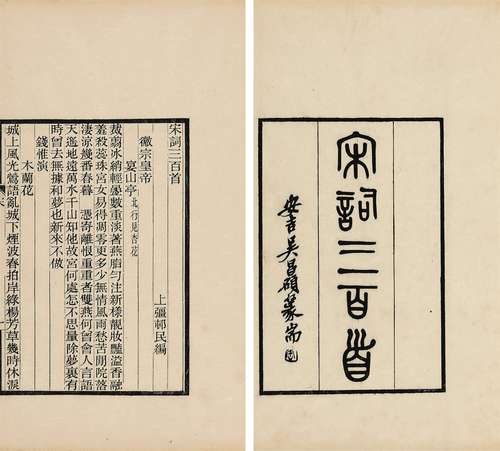 宋詞三百首
安吉吳昌碩篆耑
宋詞三百首
上彊邨民編
徽宗皇帝
宴山亭 北行見杏花
裁翦冰綃輕疊數重淡著燕脂勻注新樣靚妝豔溢香融
羞殺蕊珠宮女易得凋零更多少無情風雨愁苦閒院落
淒涼幾番春暮 憑寄離恨重重者雙燕何曾會人言語
天遙地遠萬水千山知他故宮何處怎不思量除夢裏有
時曾去無據和夢也新來不做
錢惟演
木蘭花
城上風光鶯語亂城下煙波春拍岸綠楊芳草幾時休淚